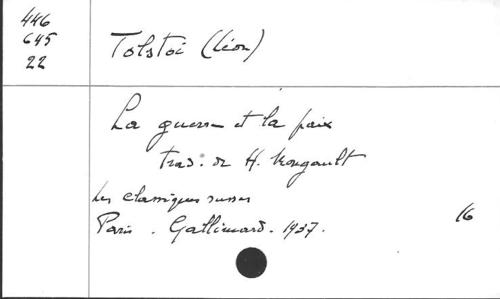 446
645
22
Tolstoï (Léon)
La guerre et la paix
trad. de H. Mongault
Les classiques russes
Paris. Gallimard. 1937.
16